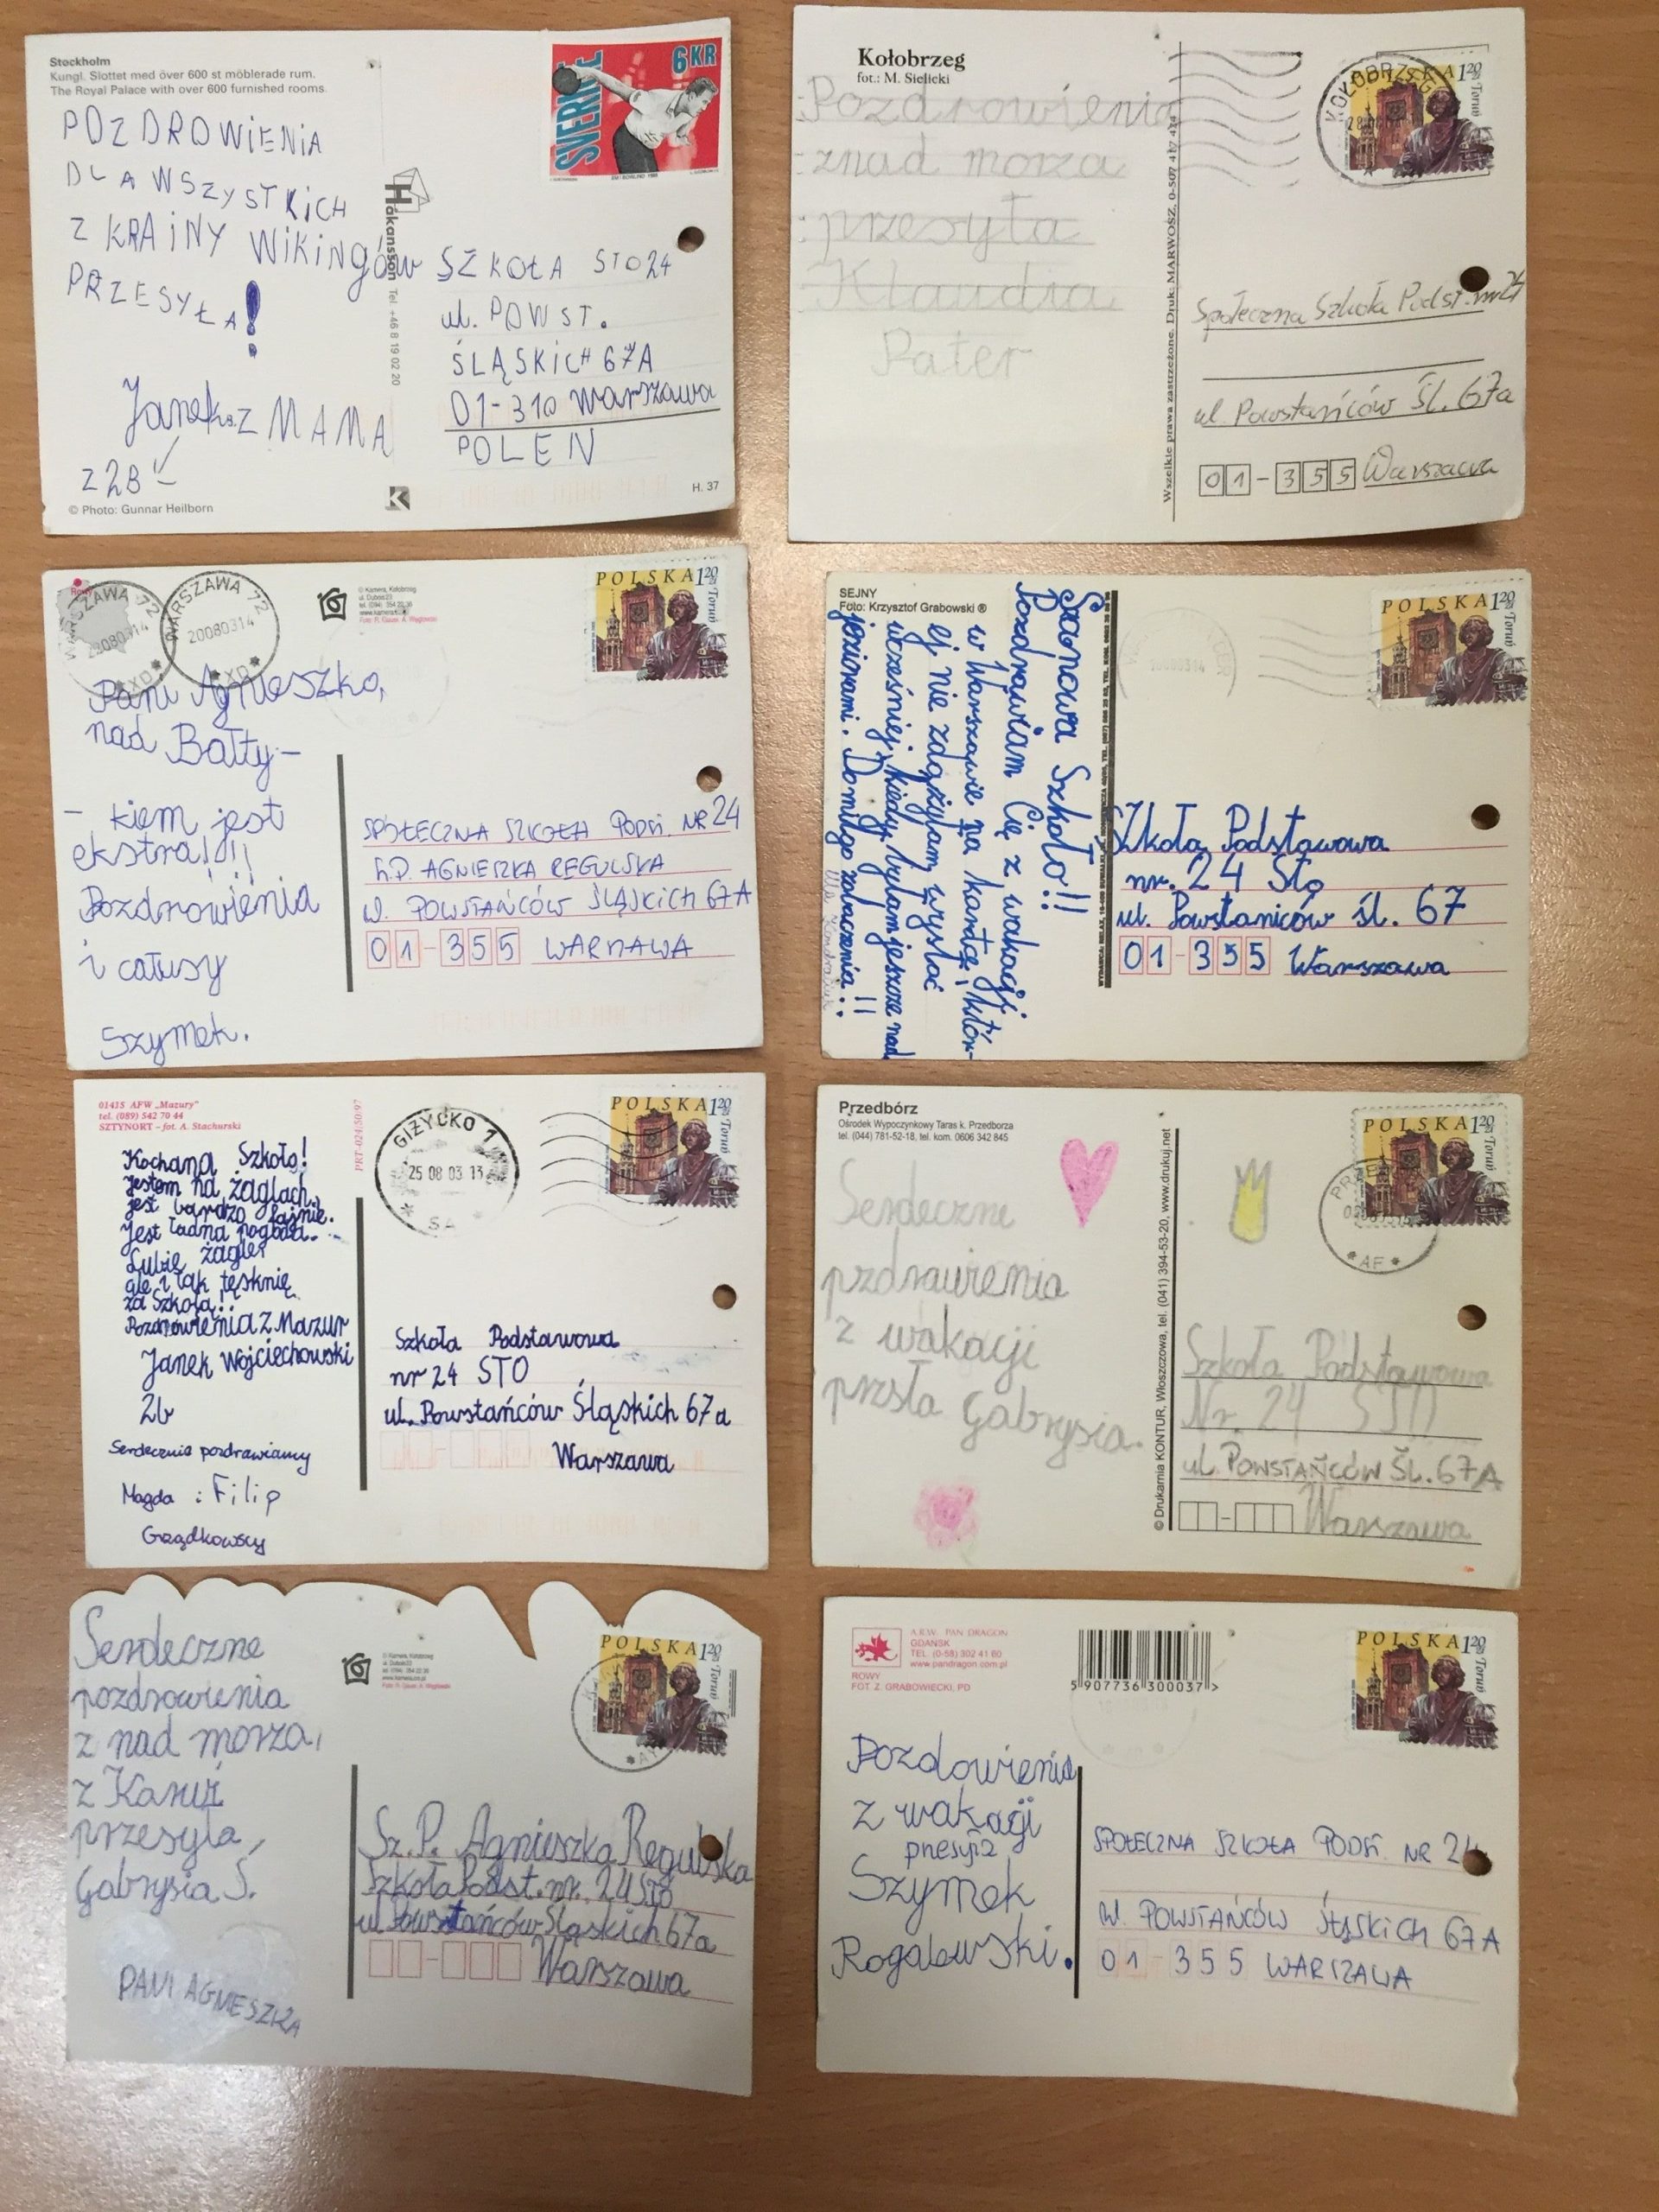 Stockholm
Kungl. Slottet med över 600 st möblerade rum.
The Royal Palace with over 600 furnished rooms.
SVERIGE 6KR
POZDROWiENiA
DLA WSZYSTKiCH
Z KRAiNY WiKiNgów
PRZESYŁA!
Janek z MAMĄ
z 2B
© Photo: Gunnar Heilborn
Håkansson Tel. +46 8 19 02 20
SZKOŁA STO 24
ul. POWST.
ŚLĄSKiCH 67A
01-310 Warszawa
POLEN
H. 37
Kołobrzeg
fot.: M. Sielicki
Pozdrowienia
znad morza
przesyła
Klaudia
Pater
Wszelkie prawa zastrzeżone. Druk: MARWOSZ, 0-507 417 434
KOŁOBRZEG
120 Toruń
Społeczna Szkoła Podst. nr 24
ul. Powstańców Śl. 67a
01-355 Warszawa
Rowy
WARSZAWA 72
20080314
WARSZAWA 72
20080314
© Kamera, Kołobrzeg
POLSKA 120 Toruń
Pani Agnieszko,
nad Bałty-
- kiem jest
ekstra!!!
Pozdrowienia
i całusy
Szymek.
SPOŁECZNA SZKOŁA PODST. NR 24
Sz.P. AGNIESZKA REGULSKA
ul. POWSTAŃCÓW ŚLĄSKICH 67A
01-355 WARSZAWA
SEJNY
Foto: Krzysztof Grabowski ®
Szanowa Szkoło!!
Pozdrawiam Cię z wakacji
w Warszawie na kartce, któr-
ej nie zdążyłam wysłać
wcześniej, kiedy byłam jeszcze nad
jeziorami. Do miłego zobaczenia!!
POLSKA 120 Toruń
Szkoła Podstawowa
nr. 24 Sto
ul. Powstaniców śl. 67
01-355 Warszawa
01415 AFW „Mazury”
tel. (089) 542 70 44
SZTYNORT – fot. A. Stachurski
PRT-024:50/97
GIŻYCKO 1
25 08 03 13
SA
POLSKA 120 Toruń
Kochana Szkoło!
Jestem na żaglach.
jest bardzo fajnie.
Jest ładna pogoda.
Lubię żagle
ale i tak tęsknię
za Szkołą!
Pozdrowienia z Mazur
Janek Wojciechowski
2b
Serdecznie pozdrawiamy
Magda i Filip
Grządkowscy
Szkoła Podstawowa
nr 24 STO
ul. Powstańców Śląskich 67a
Warszawa
Przedbórz
Ośrodek Wypoczynkowy Taras k. Przedborza
tel. (044) 781-52-18, tel. kom. 0606 342 845
Serdeczne
pzdrawienia
z wakacji
przsła Gabrysia.
© Drukarnia KONTUR, Włoszczowa, tel. (041) 394-53-20, www.drukuj.net
POLSKA 120 Toruń
AF
Szkoła Podstawowa
Nr. 24
ul. POWSTAŃCÓW ŚL. 67A
Warszawa
Serdeczne
pozdrowienia
z nad morza,
z Karwi
przesyła,
Gabrysia Ś.
PANI AGNIESZKA
© Kamera, Kołobrzeg
POLSKA 120 Toruń
Sz.P. Agnieszka Regulska
Szkoła Podst. nr. 24 STO
ul Powstańców Śląskich 67a
Warszawa
A.R.W. PAN DRAGON
GDAŃSK
TEL. (0-58) 302 41 60
www.pandragon.com.pl
ROWY
FOT. Z. GRABOWIECKI, PD
5 907736 300037 >
POLSKA 120 Toruń
Pozdowienia
z wakagi
przesyła
Szymek
Rogalewski.
SPOŁECZNA SZKOŁA PODST. NR 24
ul. POWSTAŃCÓW ŚLĄSKICH 67A
01 355 WARSZAWA